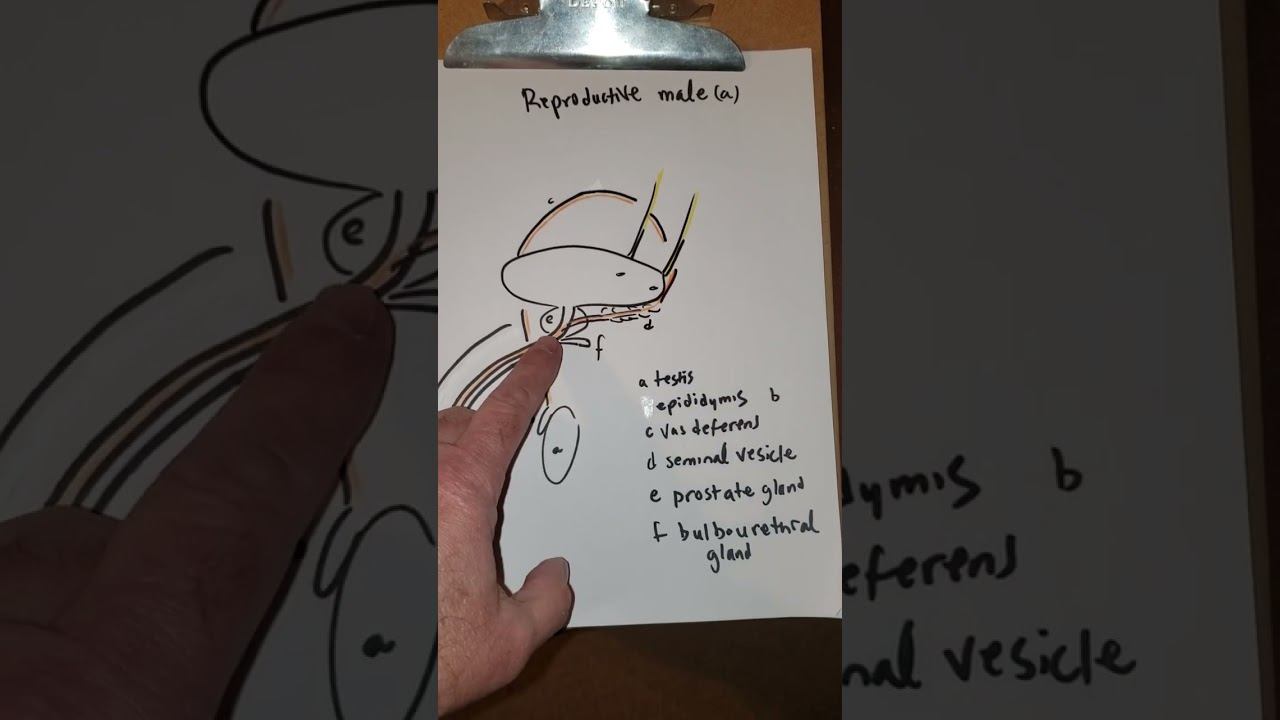 Reproductive male (a)
c
e
d
f
a
a testis
epididymis b
c vas deferens
d seminal vesicle
e prostate gland
f bulbourethral
gland
e
a
dymis b
eferens
nal vesicle